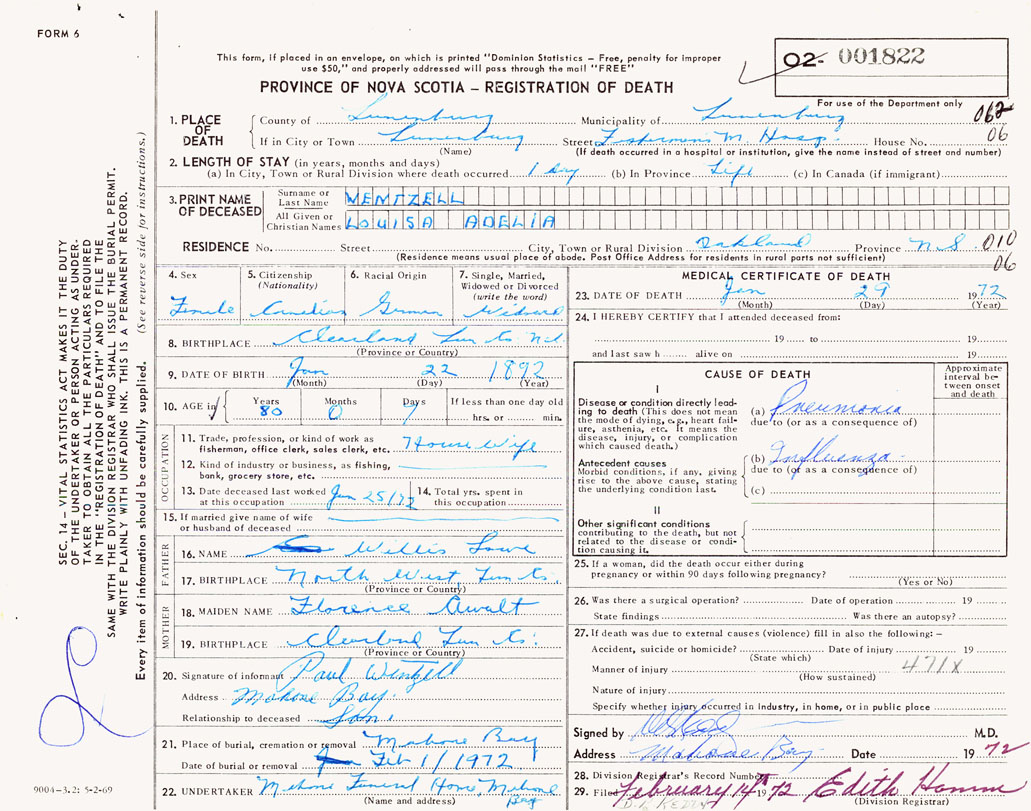 FORM 6
This form, if placed in an envelope, on which is printed "Dominion Statistics – Free, penalty for improper
use $50," and properly addressed will pass through the mail "FREE"
02- 001822
PROVINCE OF NOVA SCOTIA – REGISTRATION OF DEATH
For use of the Department only
1. PLACE OF DEATH County of Lunenburg Municipality of Lunenburg 062
If in City or Town Lunenburg Street Fishermen's M. Hosp. House No. 06
(Name) (If death occurred in a hospital or institution, give the name instead of street and number)
2. LENGTH OF STAY (in years, months and days)
(a) In City, Town or Rural Division where death occurred 1 day (b) In Province Life (c) In Canada (if immigrant)
3. PRINT NAME OF DECEASED Surname or Last Name WENTZELL
All Given or Christian Names LOUISA ADELIA
RESIDENCE No. Street City, Town or Rural Division Oakland Province N.S 010
(Residence means usual place of abode. Post Office Address for residents in rural parts not sufficient) 06
4. Sex 5. Citizenship (Nationality) 6. Racial Origin 7. Single, Married, Widowed or Divorced (write the word)
Female Canadian German Widowed
8. BIRTHPLACE Clearland Lun Co N.S
(Province or Country)
9. DATE OF BIRTH Jan 22 1892
(Month) (Day) (Year)
10. AGE in Years Months Days If less than one day old
80 0 7 hrs. or min.
OCCUPATION
11. Trade, profession, or kind of work as fisherman, office clerk, sales clerk, etc. House Wife
12. Kind of industry or business, as fishing, bank, grocery store, etc.
13. Date deceased last worked at this occupation Jan 25/72 14. Total yrs. spent in this occupation
15. If married give name of wife or husband of deceased
FATHER
16. NAME Willis Lowe
17. BIRTHPLACE North West Lun Co.
(Province or Country)
MOTHER
18. MAIDEN NAME Florence Awalt
19. BIRTHPLACE Clearland Lun Co.
(Province or Country)
20. Signature of informant Paul Wentzell
Address Mahone Bay.
Relationship to deceased Son
21. Place of burial, cremation or removal Mahone Bay
Date of burial or removal Feb 1/1972
22. UNDERTAKER Mahone Funeral Home, Mahone Bay
(Name and address)
MEDICAL CERTIFICATE OF DEATH
23. DATE OF DEATH Jan 29 1972
(Month) (Day) (Year)
24. I HEREBY CERTIFY that I attended deceased from:
19 to 19
and last saw h alive on 19
CAUSE OF DEATH
Approximate interval between onset and death
I
Disease or condition directly leading to death (This does not mean the mode of dying, e.g., heart failure, asthenia, etc. It means the disease, injury, or complication which caused death.)
(a) Pneumonia
due to (or as a consequence of)
Antecedent causes
Morbid conditions, if any, giving rise to the above cause, stating the underlying condition last.
(b) Influenza
due to (or as a consequence of)
(c)
II
Other significant conditions contributing to the death, but not related to the disease or condition causing it.
25. If a woman, did the death occur either during
pregnancy or within 90 days following pregnancy?
(Yes or No)
26. Was there a surgical operation? Date of operation 19
State findings Was there an autopsy?
27. If death was due to external causes (violence) fill in also the following: –
Accident, suicide or homicide? Date of injury 19
(State which)
Manner of injury 471X
(How sustained)
Nature of injury
Specify whether injury occurred in industry, in home, or in public place
Signed by M.D.
Address Mahone Bay Date 1972
28. Division Registrar's Record Number
29. Filed February 14 1972 Edith Hamm
(Division Registrar)
SEC. 14 – VITAL STATISTICS ACT MAKES IT THE DUTY
OF THE UNDERTAKER OR PERSON ACTING AS UNDER-
TAKER TO OBTAIN ALL THE PARTICULARS REQUIRED
IN THE "REGISTRATION OF DEATH" AND TO FILE THE
SAME WITH THE DIVISION REGISTRAR WHO SHALL ISSUE THE BURIAL PERMIT.
WRITE PLAINLY WITH UNFADING INK. THIS IS A PERMANENT RECORD.
Every item of information should be carefully supplied. (See reverse side for instructions.)
9004–3.2: 5-2-69